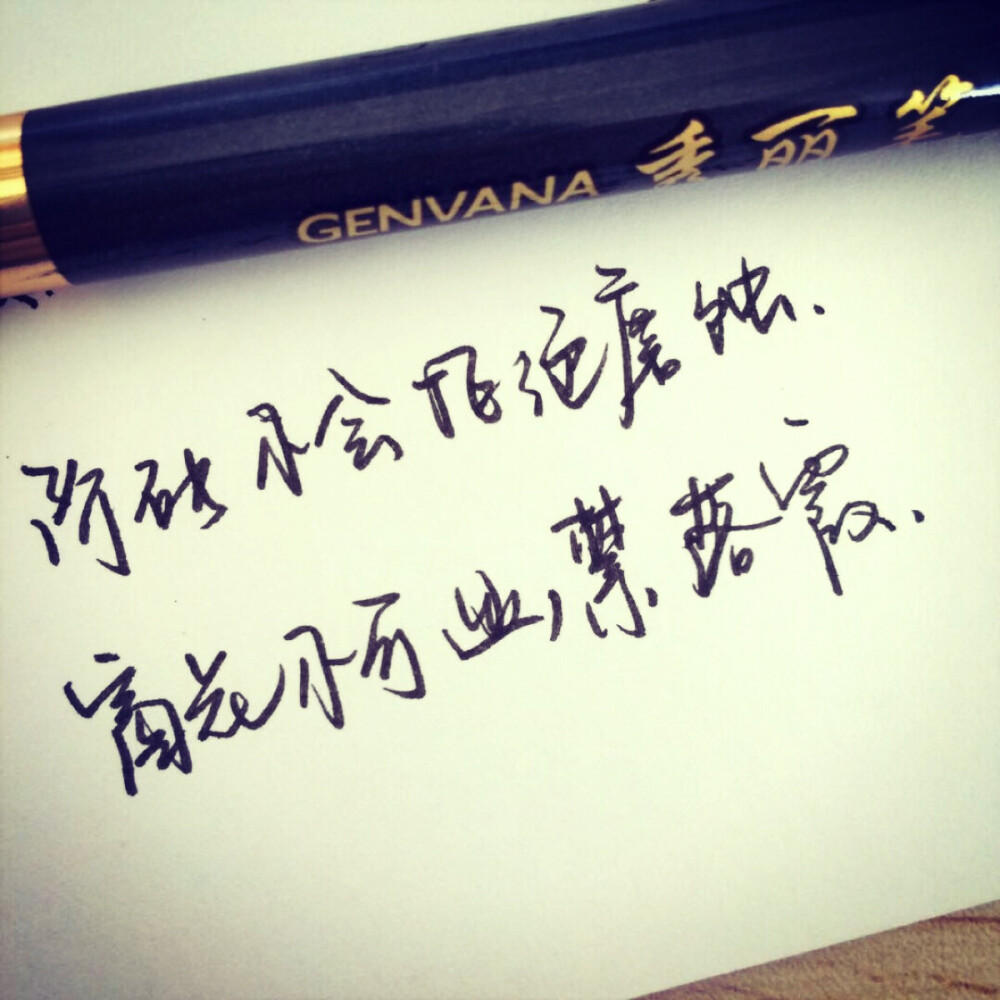 GENVANA 秀丽笔
阶砖不会拒绝磨蚀.
窗花不可幽禁落霞.